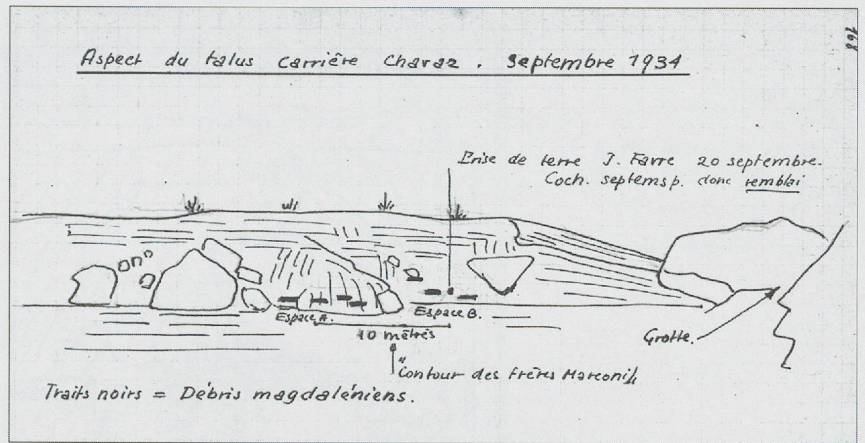 168
Aspect du talus Carrière Chavaz. Septembre 1934
Prise de terre J. Favre 20 septembre.
Coch. septemsp. donc remblai
Espace A.
Espace B.
10 mètres
Grotte.
"Contour des frères Marconi"
Traits noirs = Débris magdaléniens.